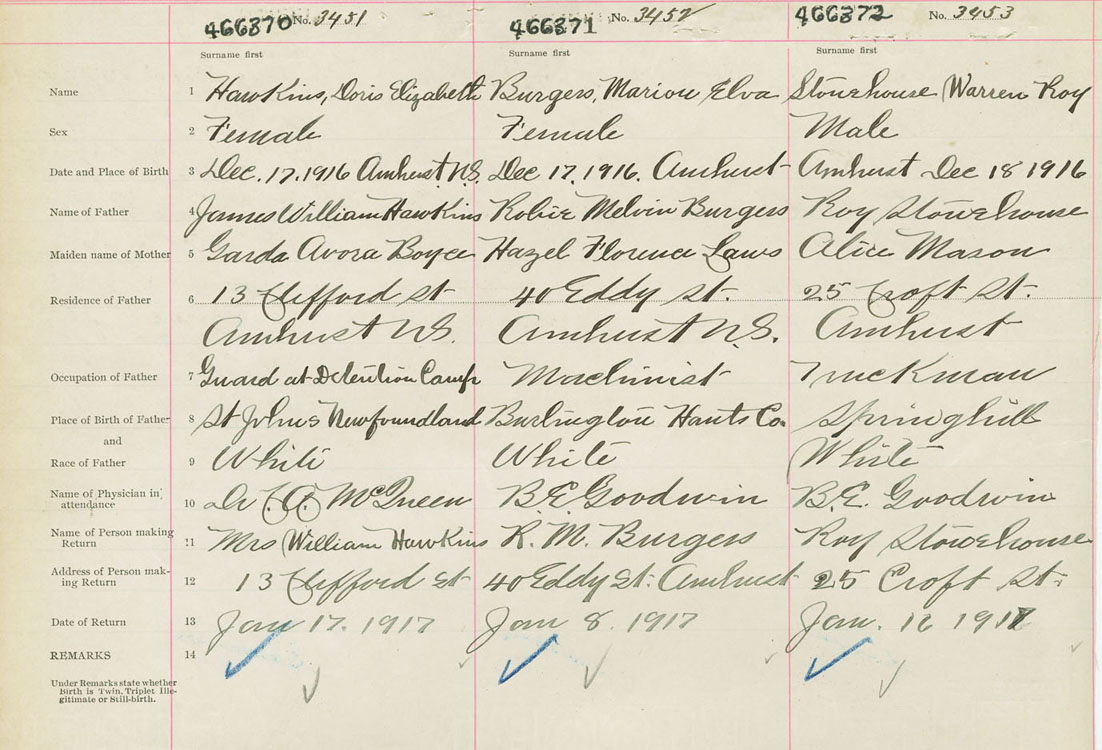 466370 No. 3451 466371 No. 3452 466372 No. 3453
Surname first Surname first Surname first
Name 1 Hawkins, Doris Elizabeth Burgess, Marion Elva Stonehouse Warren Roy
Sex 2 Female Female Male
Date and Place of Birth 3 Dec. 17. 1916 Amherst N.S. Dec 17. 1916. Amherst Amherst Dec 18 1916
Name of Father 4 James William Hawkins Robie Melvin Burgess Roy Stonehouse
Maiden name of Mother 5 Garda Avora Boyce Hazel Florence Laws Alice Mason
Residence of Father 6 13 Clifford St 40 Eddy St. 25 Croft St.
Amherst N.S. Amherst N.S. Amherst
Occupation of Father 7 Guard at Detention Camp Machinist Truckman
Place of Birth of Father 8 St Johns Newfoundland Burlington Hants Co. Springhill
and
Race of Father 9 White White White
Name of Physician in
attendance 10 Dr McQueen B.E. Goodwin B.E. Goodwin
Name of Person making
Return 11 Mrs William Hawkins R. M. Burgess Roy Stonehouse
Address of Person mak-
ing Return 12 13 Clifford St 40 Eddy St. Amherst 25 Croft St.
Date of Return 13 Jan 17. 1917 Jan 8. 1917 Jan. 1917
REMARKS 14
Under Remarks state whether
Birth is Twin, Triplet Ille-
gitimate or Still-birth.